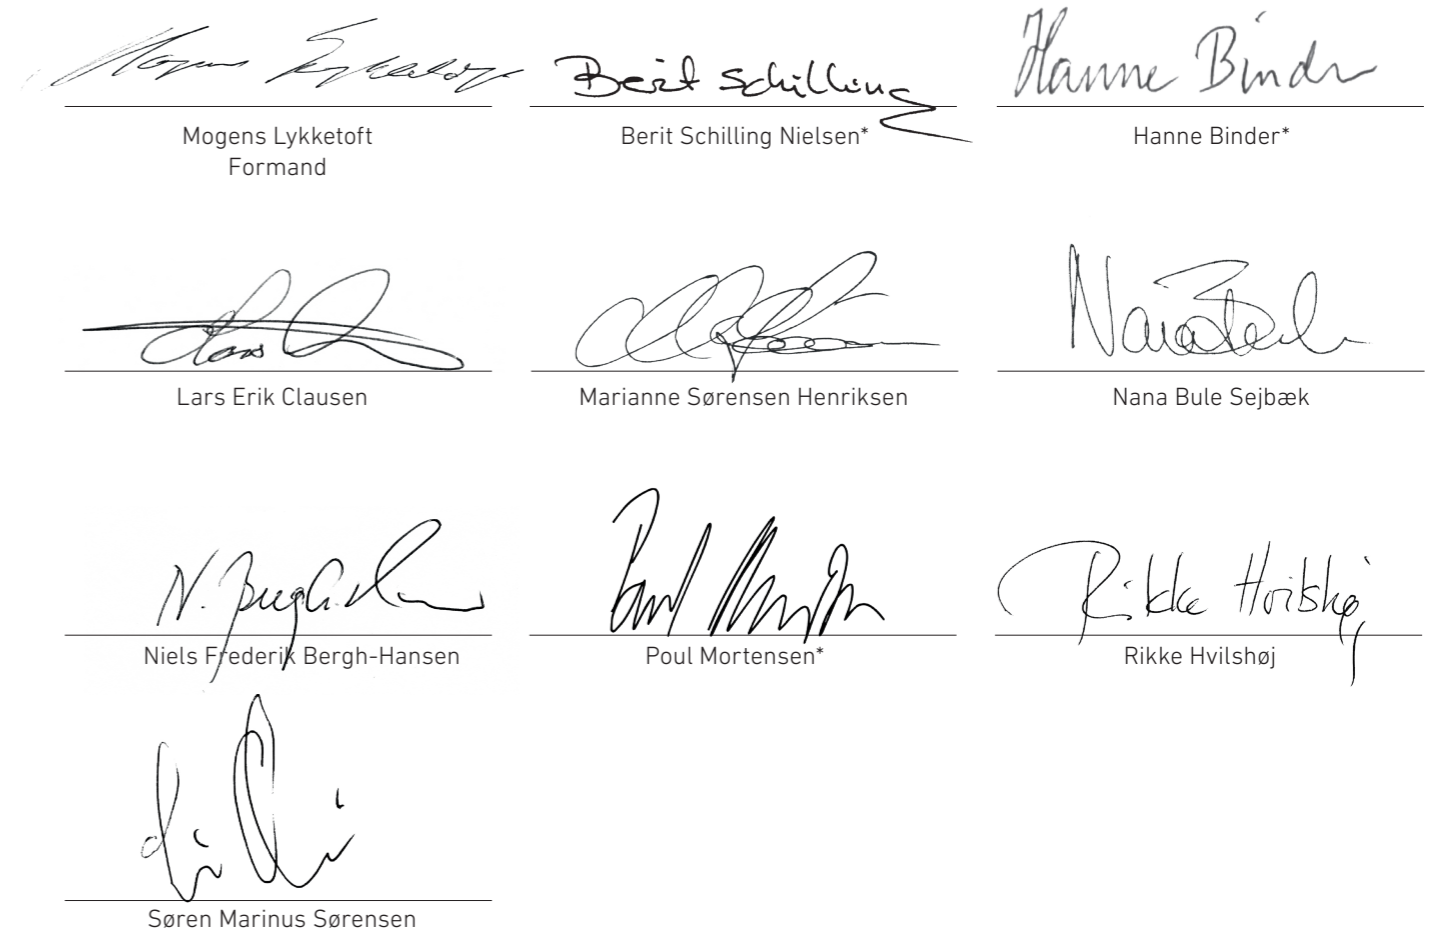 Mogens Lykketoft
Berit Schilling
Hanne Binder
Mogens Lykketoft
Formand
Berit Schilling Nielsen*
Hanne Binder*
Lars Erik Clausen
Marianne Sørensen Henriksen
Nana Bule Sejbæk
Rikke Hvilshøj
Niels Frederik Bergh-Hansen
Poul Mortensen*
Rikke Hvilshøj
Søren Marinus Sørensen